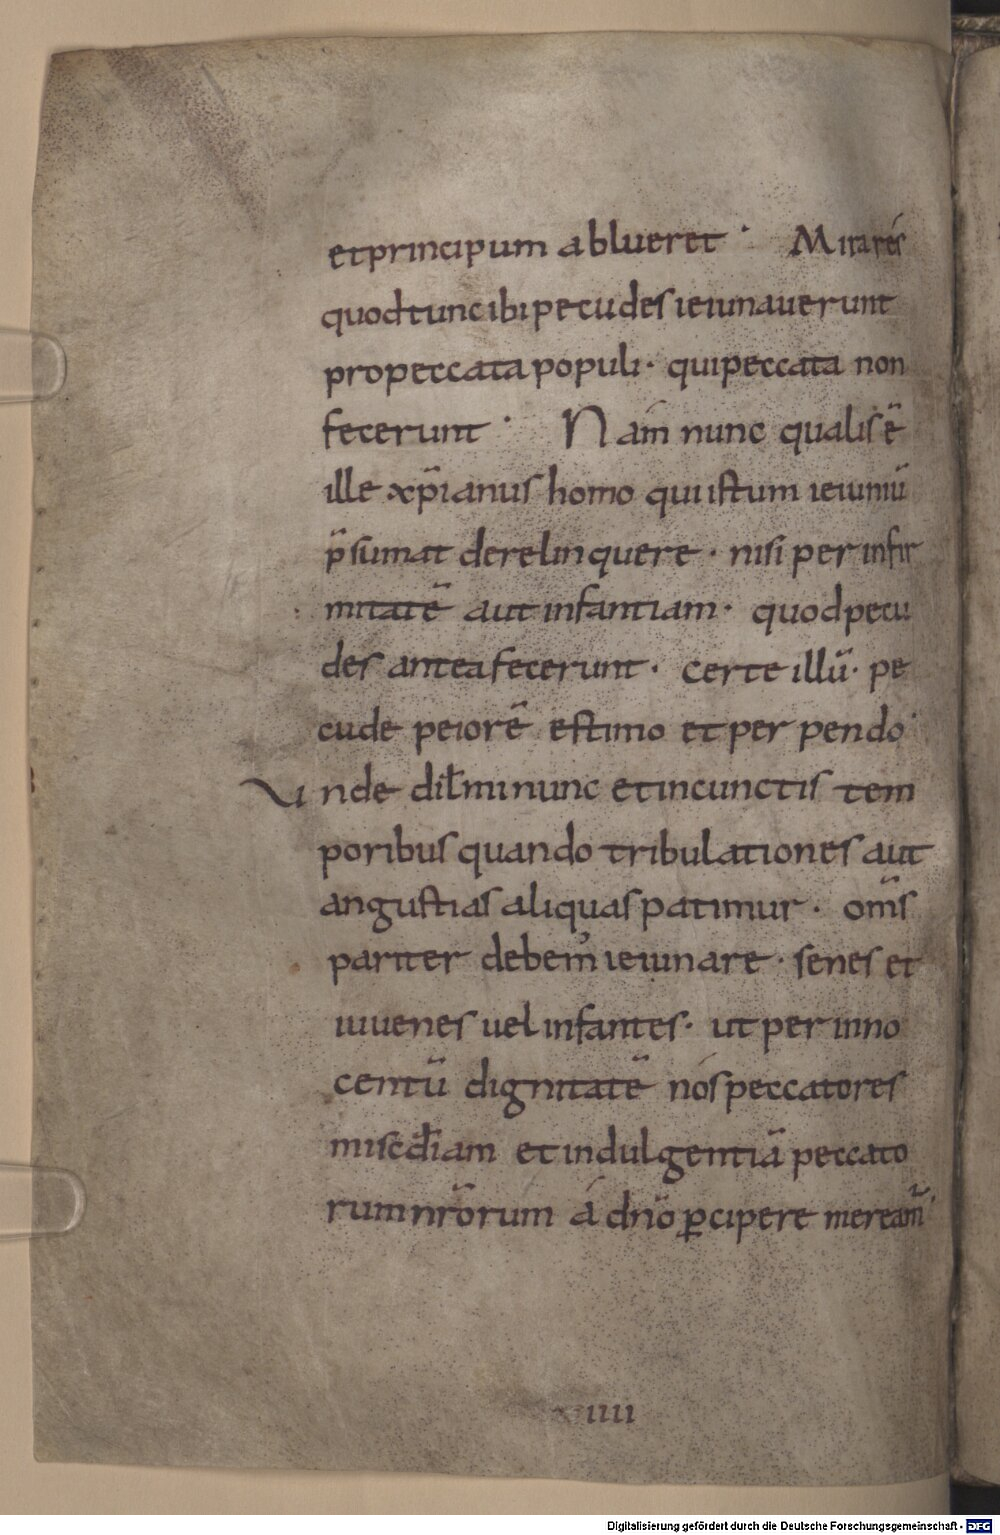 et principum ablueret · Mira res
quod tunc ibi pecudes ieiunauerunt
pro peccata populi · qui peccata non
fecerunt · Nam nunc qualis ē
ille xp̄ianus homo qui istum ieiuniū
p̄sumat derelinquere · nisi per infir
mitatē aut infantiam · quod pecu
des antea fecerunt · certe illū · pe
cude peiorē estimo et perpendo ·
Unde dil̄mi nunc et in cunctis tem
poribus quando tribulationes aut
angustias aliquas patimur · om̄s
pariter debem᾿ ieiunare · senes et
iuuenes uel infantes · ut per inno
centū dignitatē nós peccatores
misc̄diam et indulgentiā peccato
rum nr̄orum á dn̄o ꝑcipere meream̄ ·
IIII
Digitalisierung gefördert durch die Deutsche Forschungsgemeinschaft - DFG